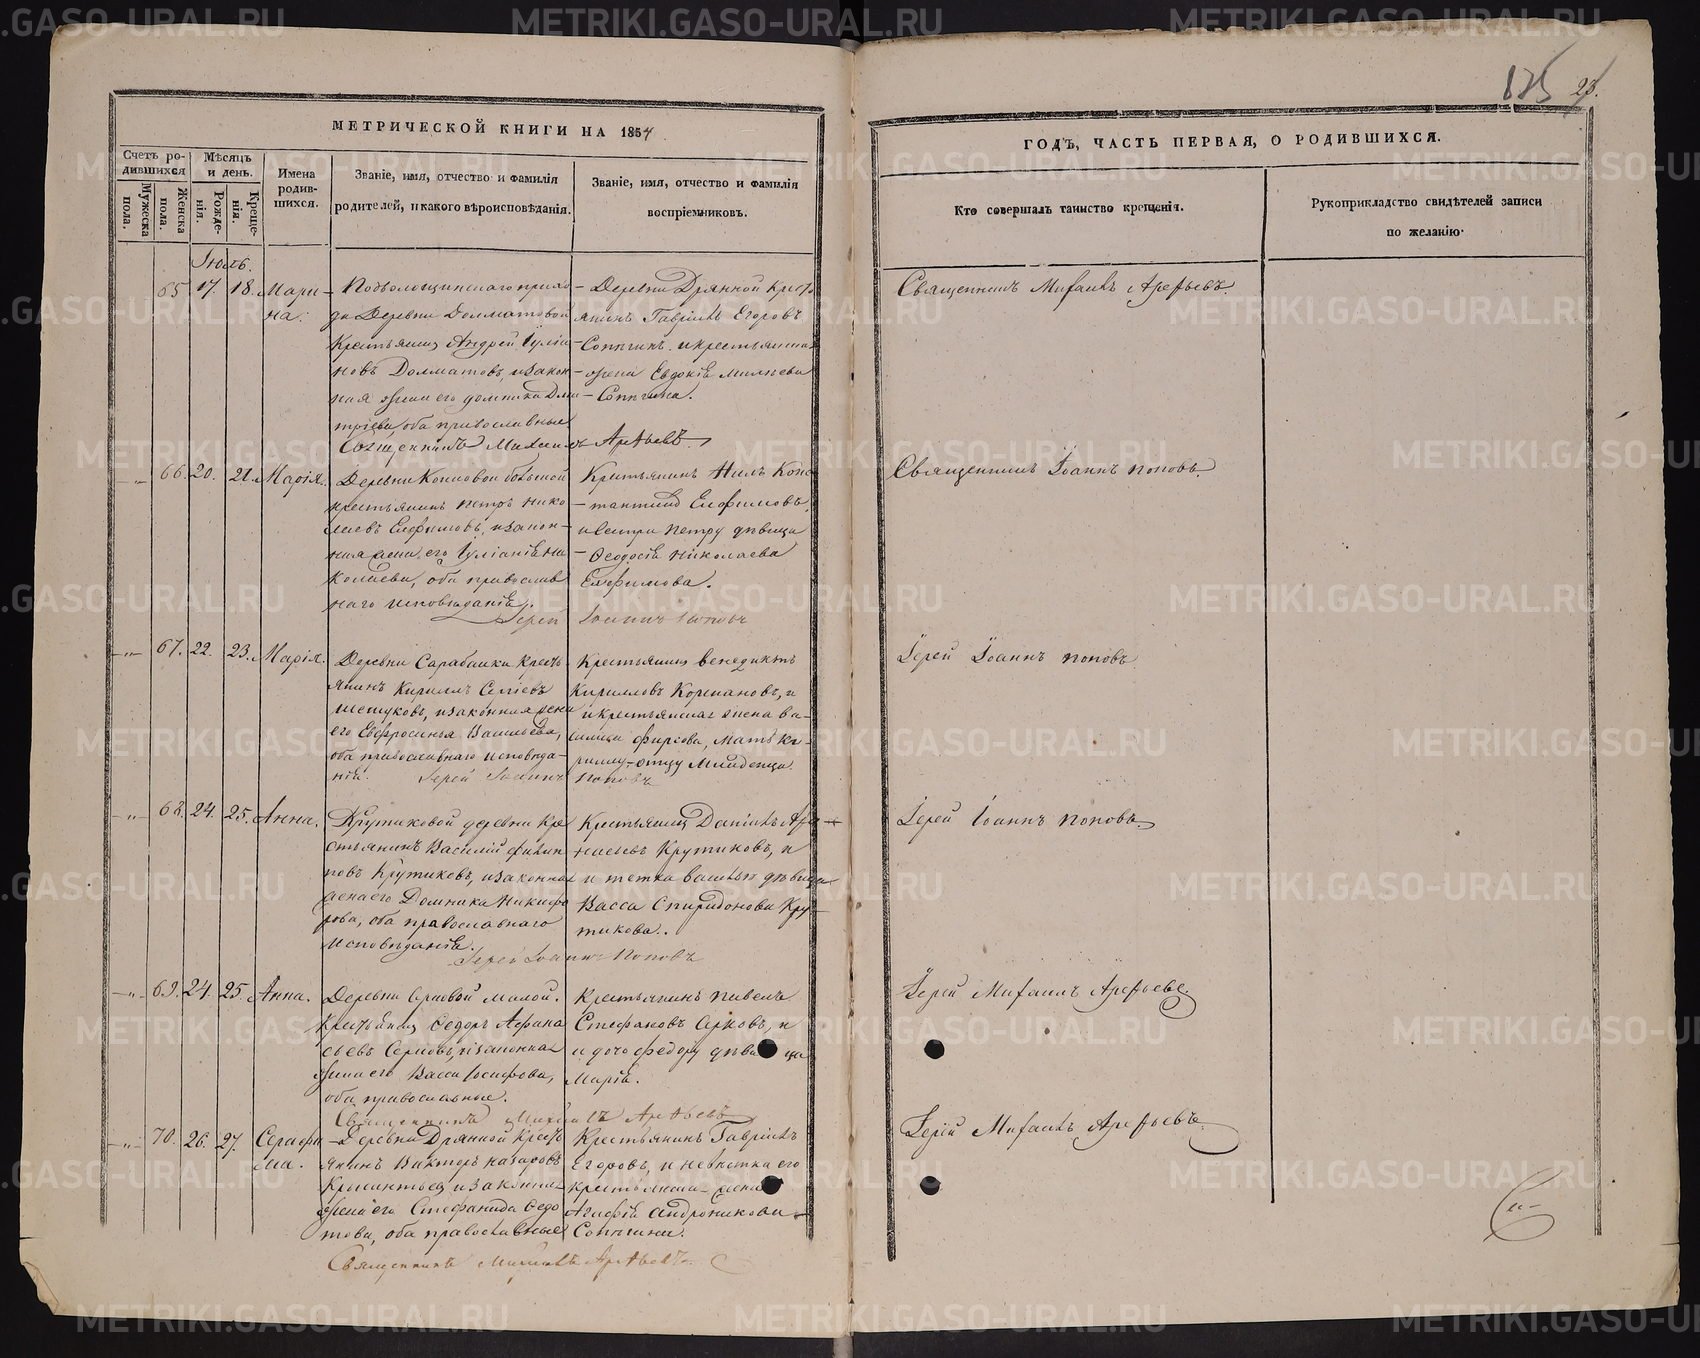 МЕТРИЧЕСКОЙ КНИГИ НА 1854
Счетъ родившихся
Мѣсяцъ и день.
Имена родившихся.
Званіе, имя, отчество и фамилія родителей, и какого вѣроисповѣданія.
Званіе, имя, отчество и фамилія воспріемниковъ.
Мужеска пола.
Женска пола.
Рожденія.
Крещенія.
Іюль.
65 17. 18. Марина.
Подволошинскаго прихода Деревни Долматовой
Крестьянинъ Андрей Іуліановъ Долматовъ, и законная жена его Домника Дмитріева, оба православные
Деревни Дрянной крестьянинъ Гавріилъ Егоровъ
Сопыгинъ и крестьянская
жена Евдокія
Сопыгина.
Священникъ Михаилъ Арефьевъ
66. 20. 21. Марія.
Деревни Копповой большой
крестьянинъ Петръ Николаевъ Елфимовъ, и законная жена его Іуліанія Николаева, оба православнаго исповѣданія.
Крестьянинъ Нилъ Константиновъ Елфимовъ,
и сестра Петру дѣвица
Феодосія Николаева
Елфимова.
Іерей Іоаннъ Поповъ
67. 22. 23. Марія.
Деревни Сарабайки крестьянинъ Кириллъ
Шешуковъ, и законная жена
его Евфросинья Васильева,
оба православнаго исповѣданія.
Крестьянинъ Венедиктъ
Кирилловъ Корепановъ, и
крестьянская жена Василиса Фирсова, мать Кириллу отцу младенца.
Іерей Іоаннъ Поповъ
68. 24. 25. Анна.
Крутиковой деревни крестьянинъ Василій Филипповъ Крутиковъ, и законная
жена его Домника Никифорова, оба православнаго
исповѣданія.
Крестьянинъ Даніилъ Афанасьевъ Крутиковъ, и
тетка Василью дѣвица
Васса Спиридонова Крутикова.
Іерей Іоаннъ Поповъ
69. 24. 25. Анна.
Деревни Серковой малой.
Крестьянинъ Ѳедоръ Афанасьевъ Серковъ, и законная
жена его Васса Іосифова,
оба православные.
Крестьянинъ Павелъ
Стефановъ Серковъ, и
дочь Федору дѣвица
Марія.
Священникъ Михаилъ Арефьевъ
70. 26. 27. Серафима.
Деревни Дрянной крестьянинъ Викторъ Назаровъ
и законная
жена его Стефанида Федотова, оба православные
Крестьянинъ Гавріилъ
Егоровъ, и невѣстка его
крестьянская жена
Агафія Андроникова
Сопыгины.
Священникъ Михаилъ Арефьевъ
ГОДЪ, ЧАСТЬ ПЕРВАЯ, О РОДИВШИХСЯ.
Кто совершалъ таинство крещенія.
Рукоприкладство свидѣтелей записи
по желанію.
Священникъ Михаилъ Арефьевъ.
Священникъ Іоаннъ Поповъ
Іерей Іоаннъ Поповъ
Іерей Іоаннъ Поповъ
Іерей Михаилъ Арефьевъ.
Іерей Михаилъ Арефьевъ.
METRIKI.GASO-URAL.RU